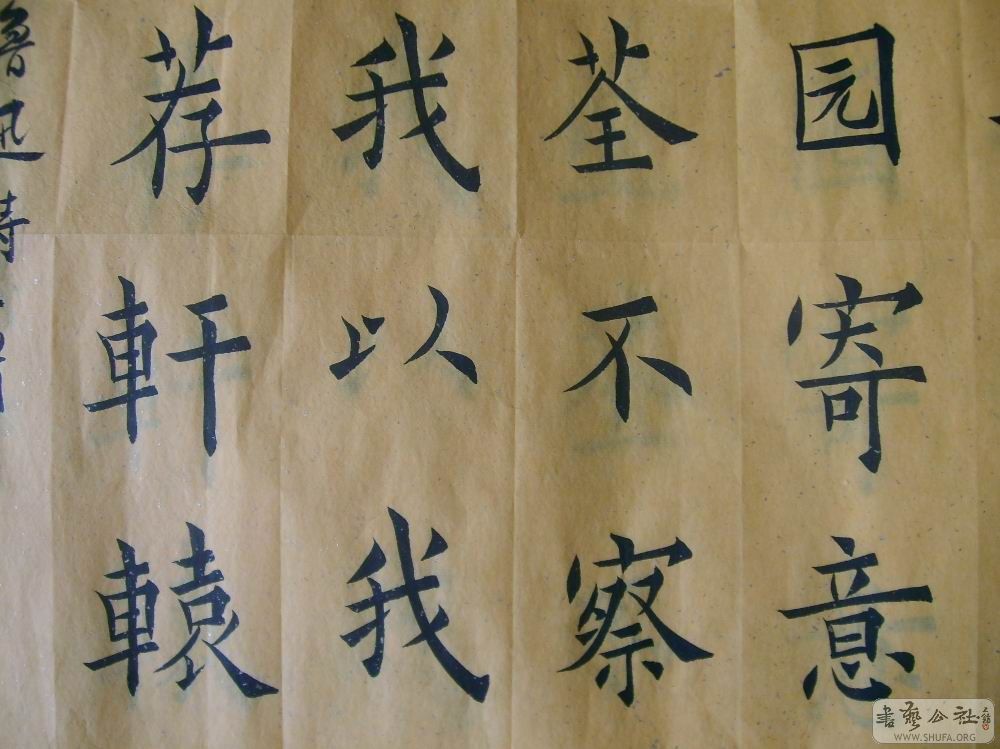 园寄意
荃不察
我以我
荐軒轅
魯迅诗
書藝公社
WWW.SHUFA.ORG